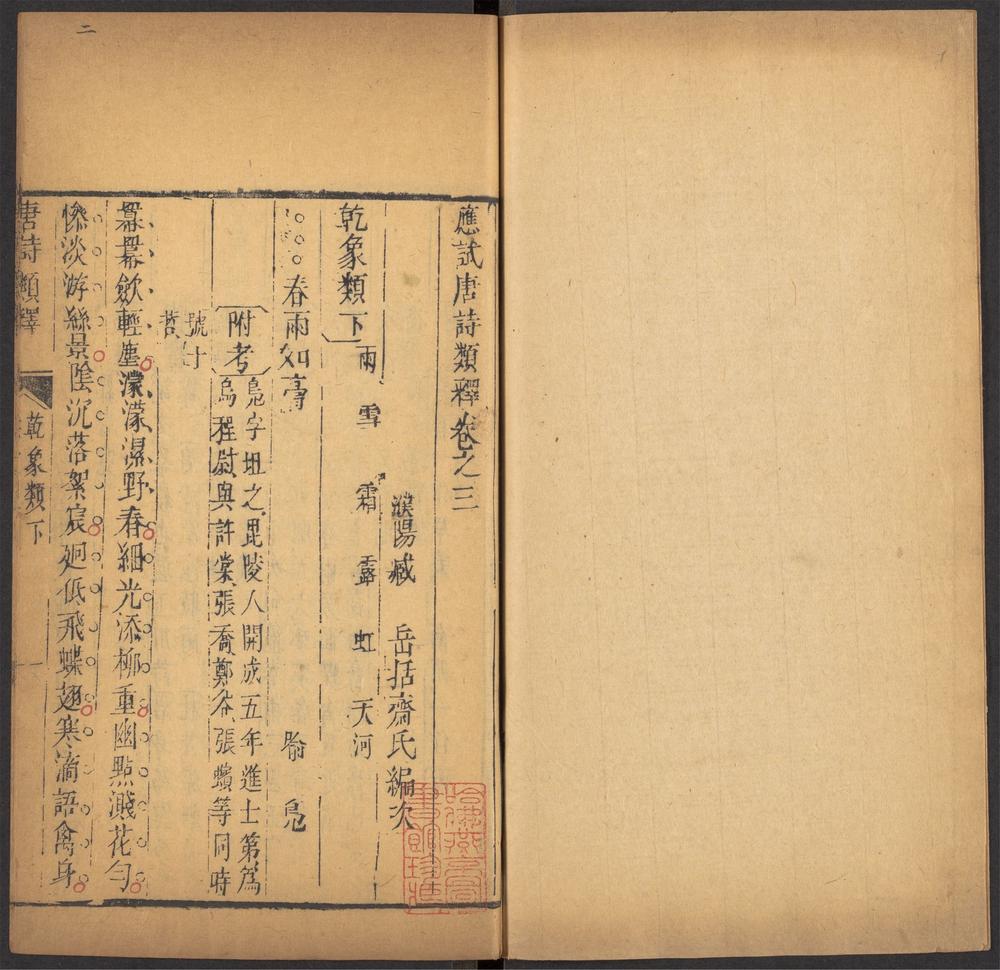 應試唐詩類釋卷之三
濮陽臧 岳括齋氏編次
乾象類下 雨 雪 霜 露 虹 天河
春雨如膏 喻 凫
附考 凫字坦之毘陵人開成五年進士第為
烏程尉與許棠張喬鄭谷張蠙等同時
號十
哲
羃羃歛輕塵濛濛濕野春細光添柳重幽點濺花勻
慘淡游絲景陰沉落絮宸廻低飛蝶翅寒滴語禽身
唐詩類釋 乾象類下 一
二
哈佛燕京圖書館珍藏